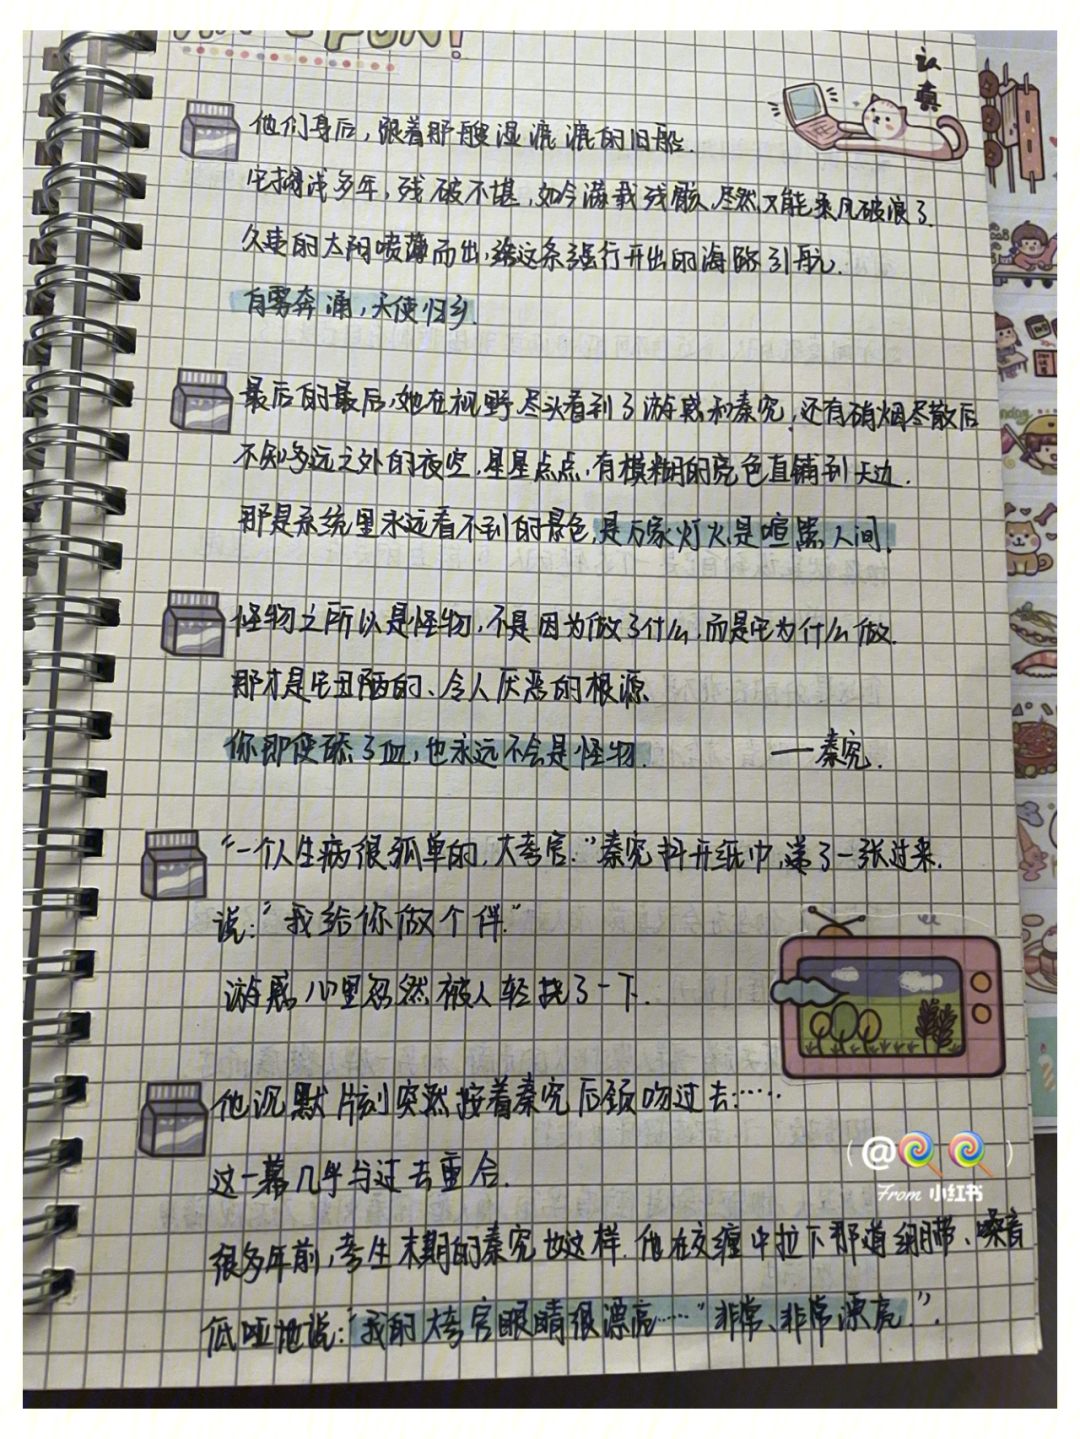 FUN!
认真
他们身后，跟着那艘湿漉漉的旧船.
它搁浅多年，残破不堪，如今满载残骸，居然又能乘风破浪了.
久违的太阳喷薄而出，给这条强行开出的海路引航.
白雾奔涌，天使归乡.
最后的最后，她在视野尽头看到了游惑和秦究，还有硝烟尽散后
不知多远之外的夜空，星星点点，有模糊的亮色直铺到天边.
那是系统里永远看不到的景色，是万家灯火，是喧嚣人间.
怪物之所以是怪物，不是因为做了什么，而是它为什么做.
那才是它丑陋的、令人厌恶的根源.
你即使舔了血，也永远不会是怪物.   ——秦究.
“一个人生病很孤单的，大考官.”秦究抖开纸巾，递了一张过来.
说：“我给你做个伴.”
游惑心里忽然被人轻挠了一下.
他沉默片刻突然按着秦究后颈吻过去……
这一幕几乎与过去重合.
很多年前，考生末期的秦究也这样.他在交缠中拉下那道绷带、嗓音
低哑地说：“我的大考官眼睛很漂亮……”非常、非常漂亮.”.
(@🍭🍭)
From 小红书